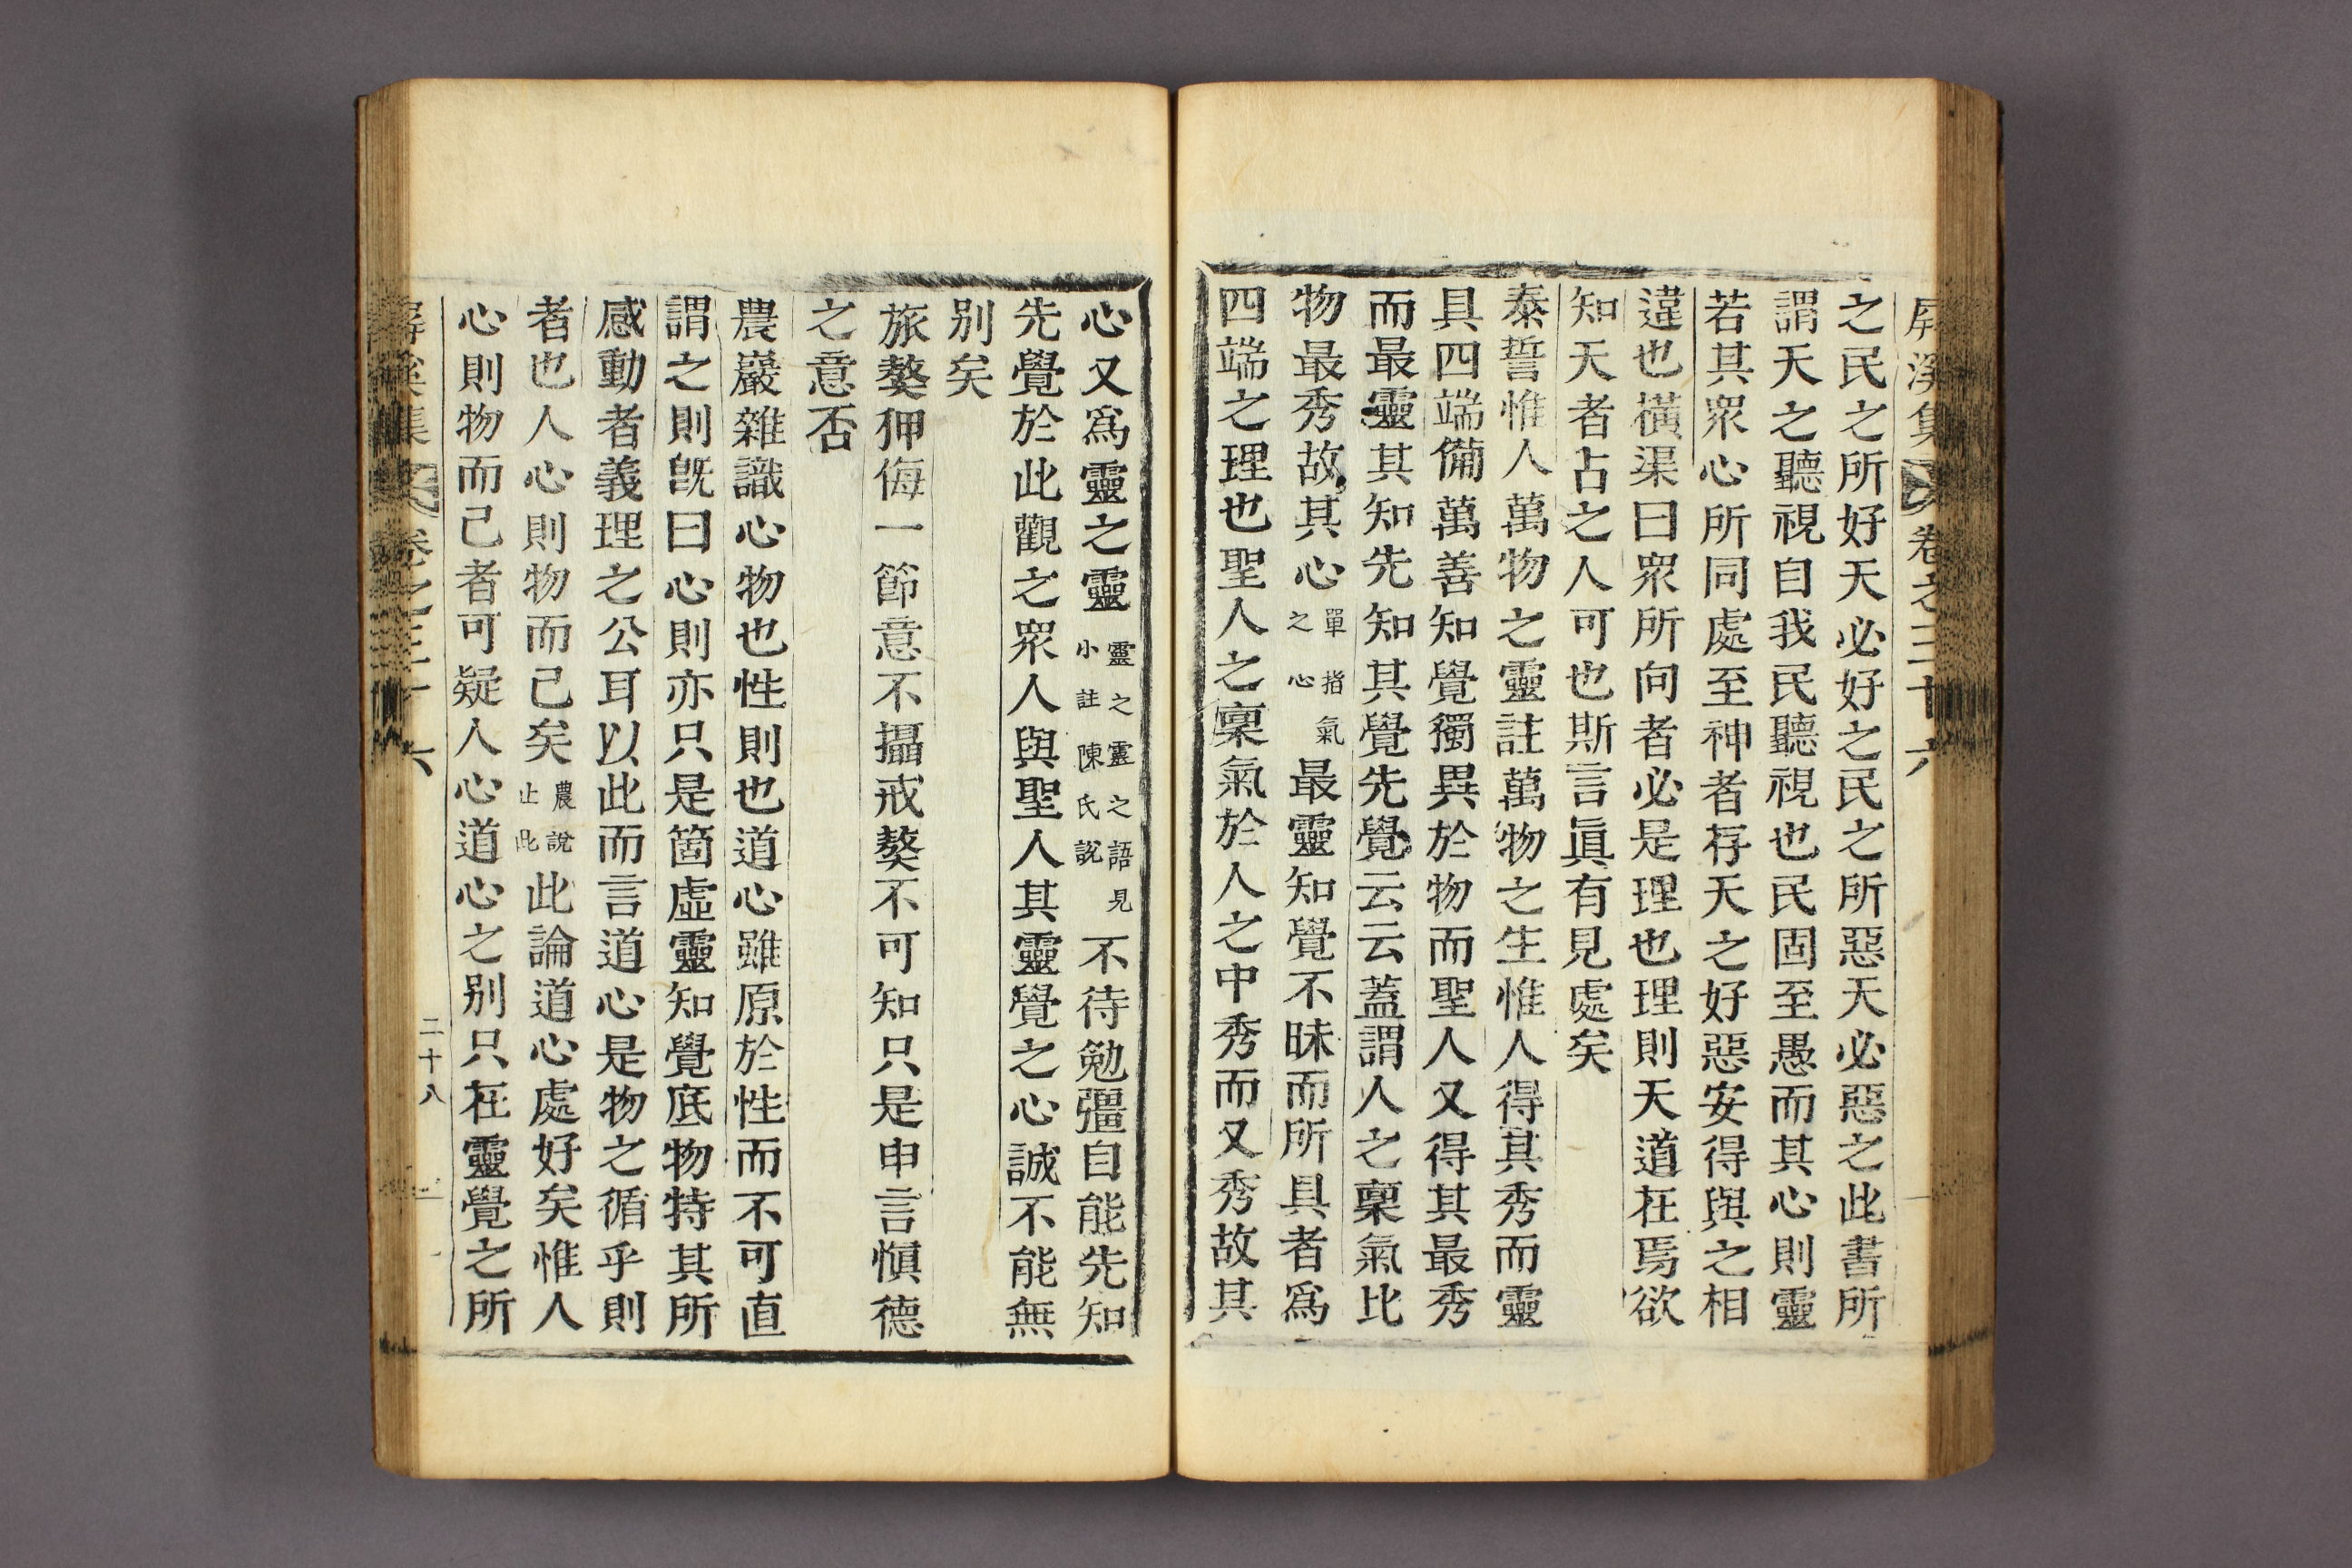 屛溪集 卷之三十六
之民之所好天必好之民之所惡天必惡之此書所
謂天之聽視自我民聽視也民固至愚而其心則靈
若其衆心所同處至神者存天之好惡安得與之相
違也橫渠曰衆所向者必是理也理則天道在焉欲
知天者占之人可也斯言眞有見處矣
泰誓惟人萬物之靈註萬物之生惟人得其秀而靈
具四端備萬善知覺獨異於物而聖人又得其最秀
而最靈其知先知其覺先覺云云蓋謂人之稟氣比
物最秀故其心單指氣之心最靈知覺不昧而所具者爲
四端之理也聖人之稟氣於人之中秀而又秀故其
心又爲靈之靈靈之靈之語見小註陳氏說不待勉彊自能先知
先覺於此觀之衆人與聖人其靈覺之心誠不能無
別矣
旅獒狎侮一節意不攝戒獒不可知只是申言愼德
之意否
農巖雜識心物也性則也道心雖原於性而不可直
謂之則旣曰心則亦只是箇虛靈知覺底物特其所
感動者義理之公耳以此而言道心是物之循乎則
者也人心則物而已矣農說止此此論道心處好矣惟人
心則物而已者可疑人心道心之別只在靈覺之所
屛溪集 卷之三十六 二十八